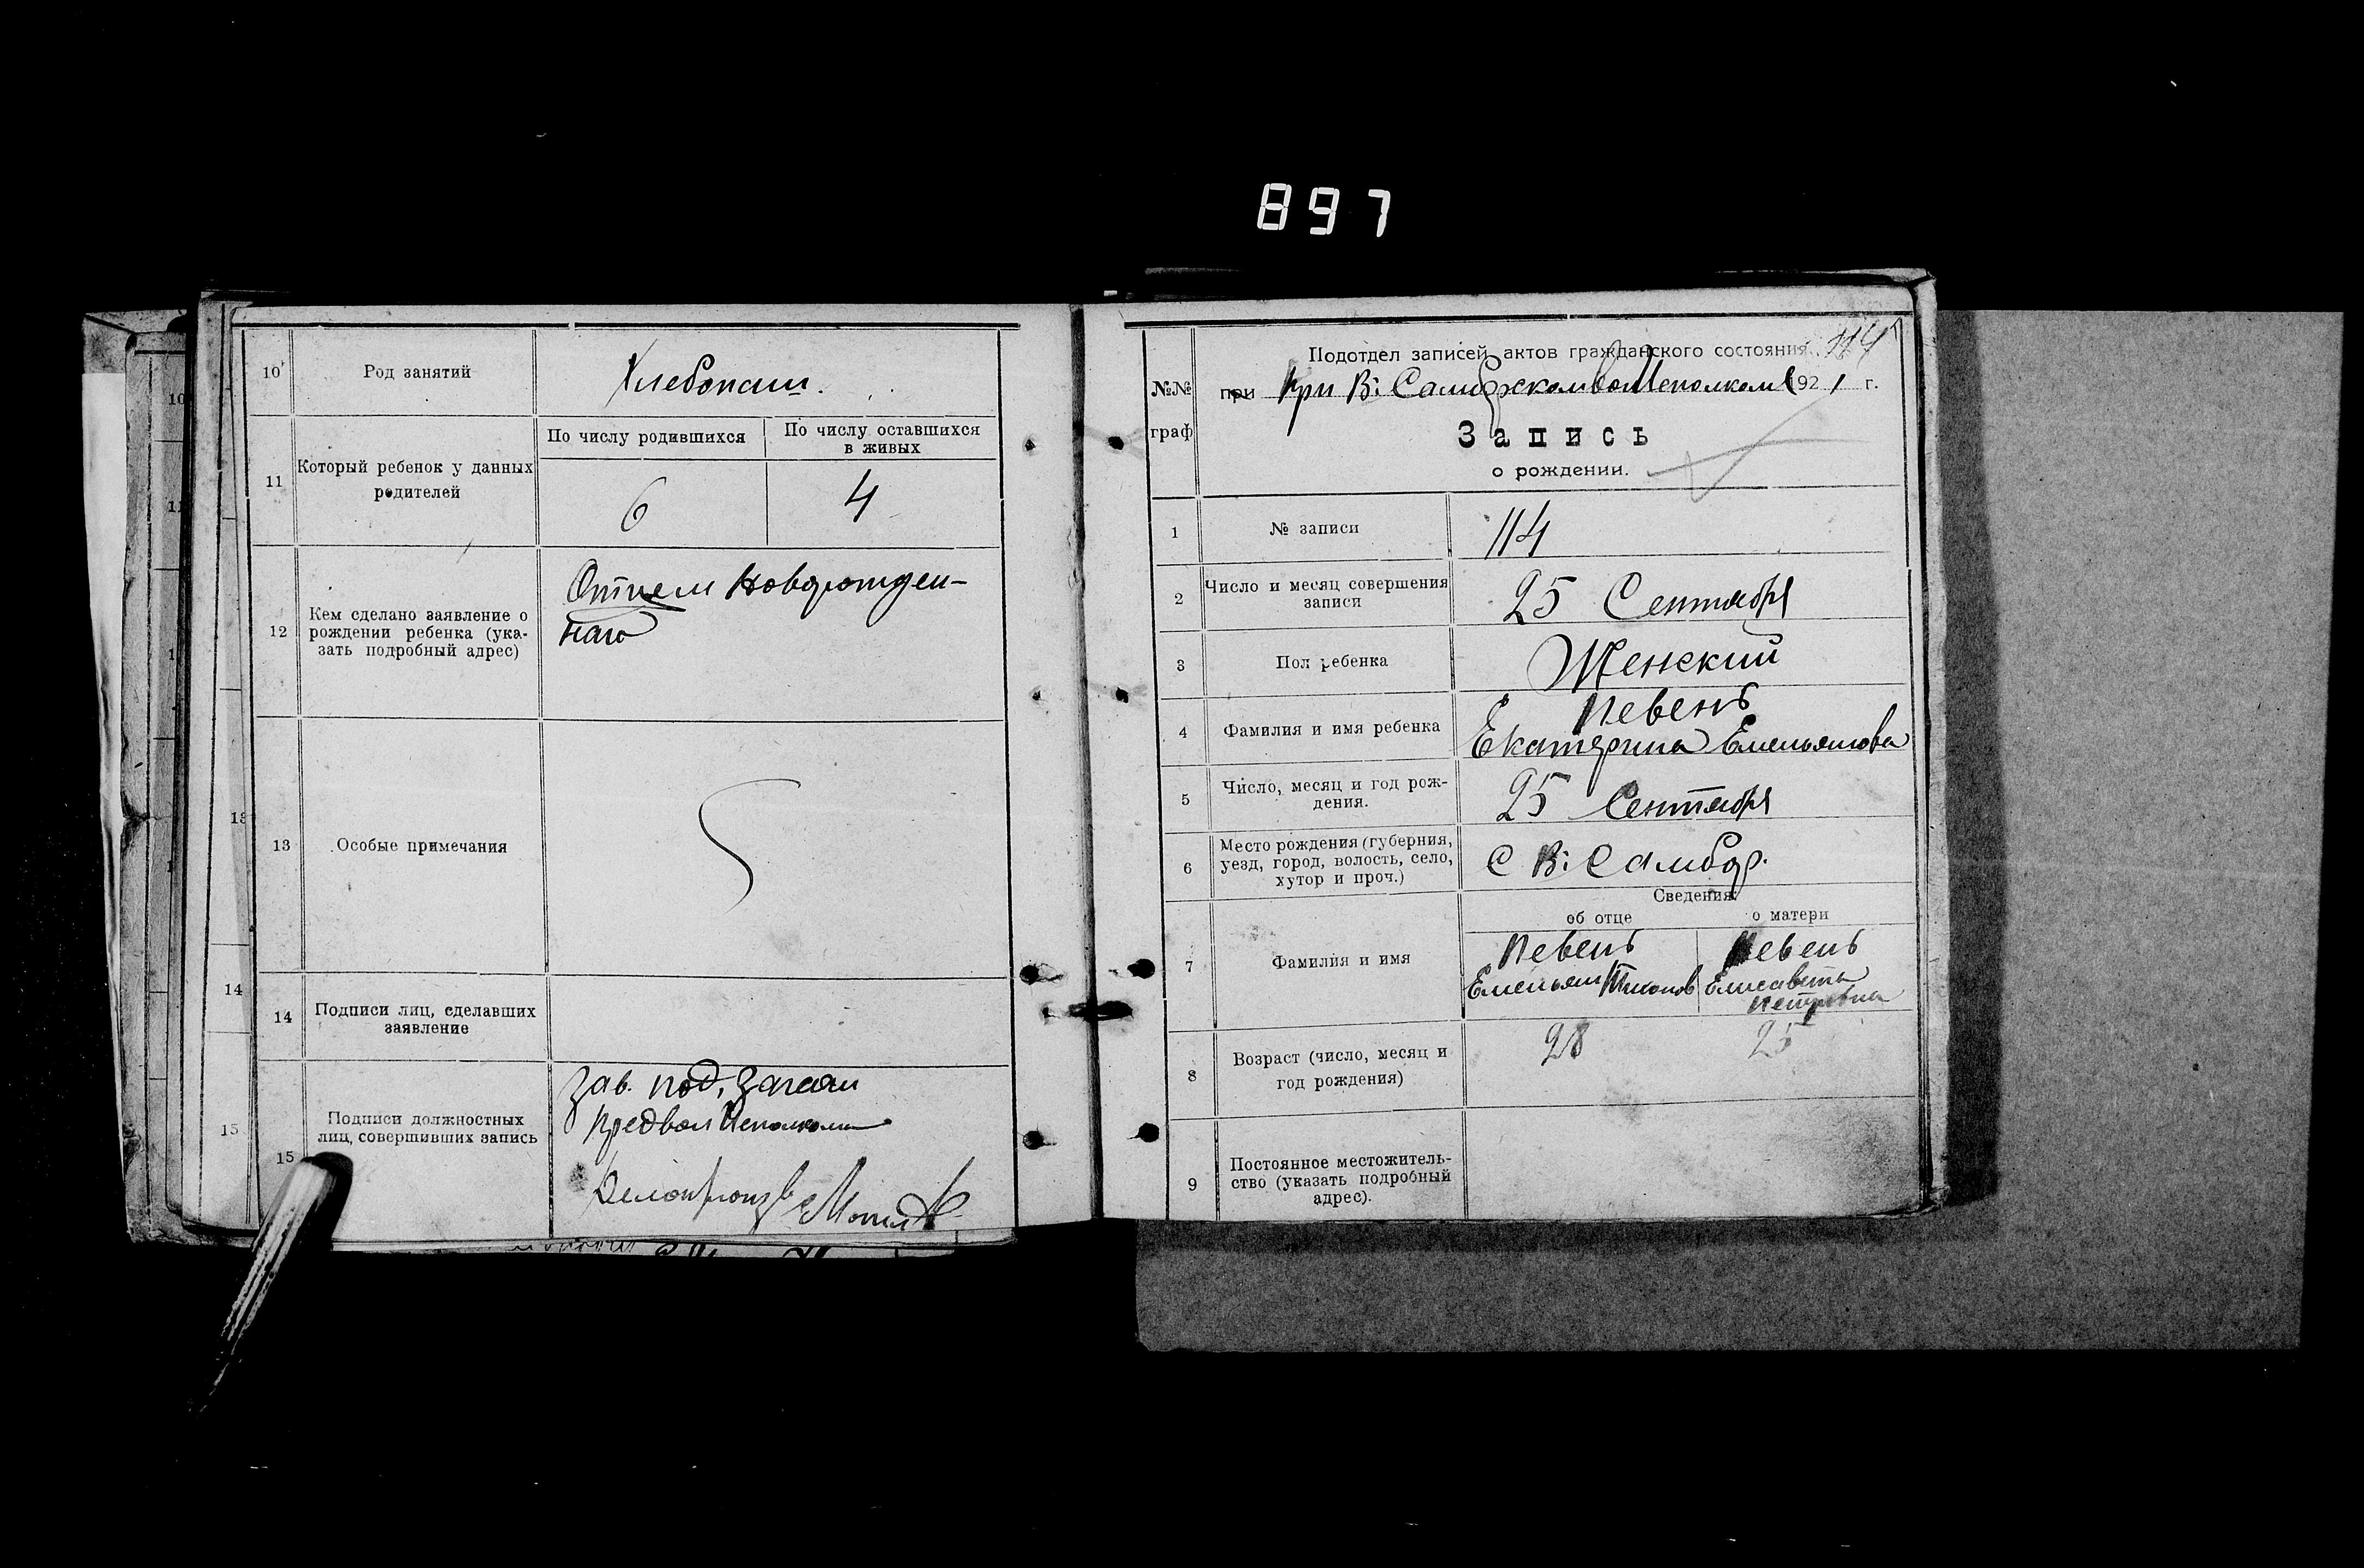 897
10
Род занятий
Хлебопаш.
11
Который ребенок у данных
родителей
По числу родившихся
По числу оставшихся
в живых
6
4
12
Кем сделано заявление о
рождении ребенка (ука-
зать подробный адрес)
Отцем новорожден-
наго
13
Особые примечания
14
Подписи лиц, сделавших
заявление
15
Подписи должностных
лиц, совершивших запись
Зав. под.
Предвол Исполкома
Делопроизв
№№
граф
Подотдел записей актов гражданского состояния 114
при При В: Самборском вол Исполком 1921 г.
Запись
о рождении.
1
№ записи
114
2
Число и месяц совершения
записи
25 Сентября
3
Пол ребенка
Женский
4
Фамилия и имя ребенка
Певень
Екатерина Емельянова
5
Число, месяц и год рож-
дения.
25 Сентября
6
Место рождения (губерния,
уезд, город, волость, село,
хутор и проч.)
С В: Самбор.
Сведения:
об отце
о матери
7
Фамилия и имя
Певень
Емельян Тихонов
Певень
Елисавета
Петровна
8
Возраст (число, месяц и
год рождения)
28
25
9
Постоянное местожитель-
ство (указать подробный
адрес).